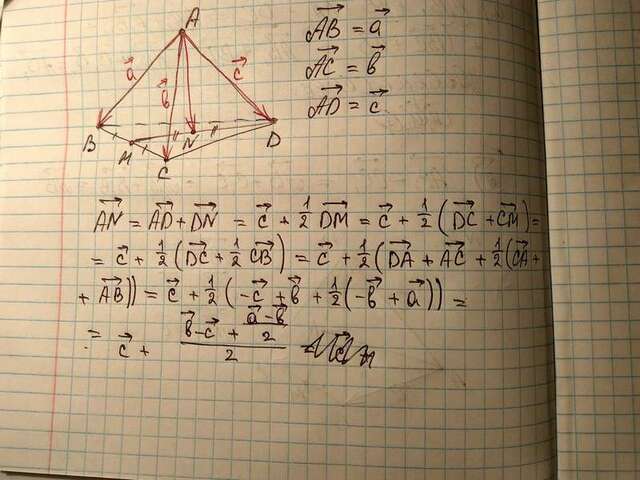 A
a⃗
b⃗
c⃗
B
M
C
N
D
AB⃗ = a⃗
AC⃗ = b⃗
AD⃗ = c⃗
AN⃗ = AD⃗ + DN⃗ = c⃗ + 1/2 DM⃗ = c⃗ + 1/2 (DC⃗ + CM⃗) =
= c⃗ + 1/2 (DC⃗ + 1/2 CB⃗) = c⃗ + 1/2 (DA⃗ + AC⃗ + 1/2 (CA⃗ +
+ AB⃗)) = c⃗ + 1/2 (-c⃗ + b⃗ + 1/2 (-b⃗ + a⃗)) =
= c⃗ + (b⃗ - c⃗ + (a⃗ - b⃗)/2)/2